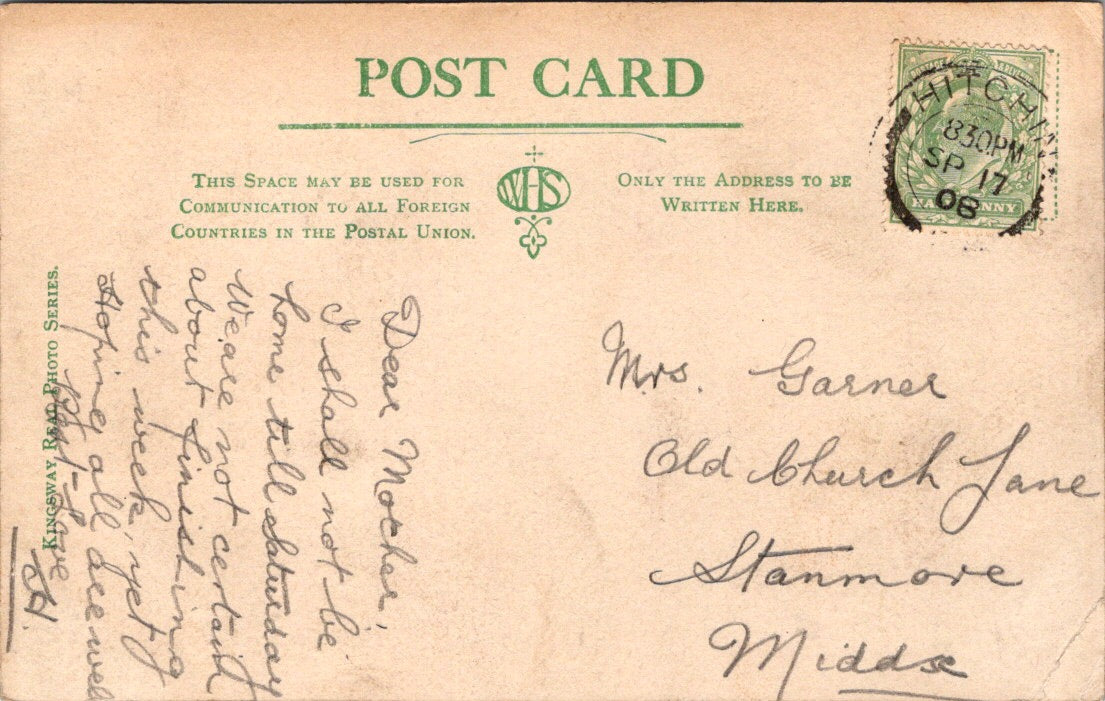 POST CARD
THIS SPACE MAY BE USED FOR
COMMUNICATION TO ALL FOREIGN
COUNTRIES IN THE POSTAL UNION.
WHS
ONLY THE ADDRESS TO BE
WRITTEN HERE.
HITCHIN
8 30 PM
SP 17
08
HALFPENNY
KINGSWAY, REAL PHOTO SERIES.
Dear Mother,
I shall not be
home till Saturday
We are not certain
about finishing
this week, yet
Hoping all are well
Best-Love
H.
Mrs. Garner
Old Church Lane
Stanmore
Middx